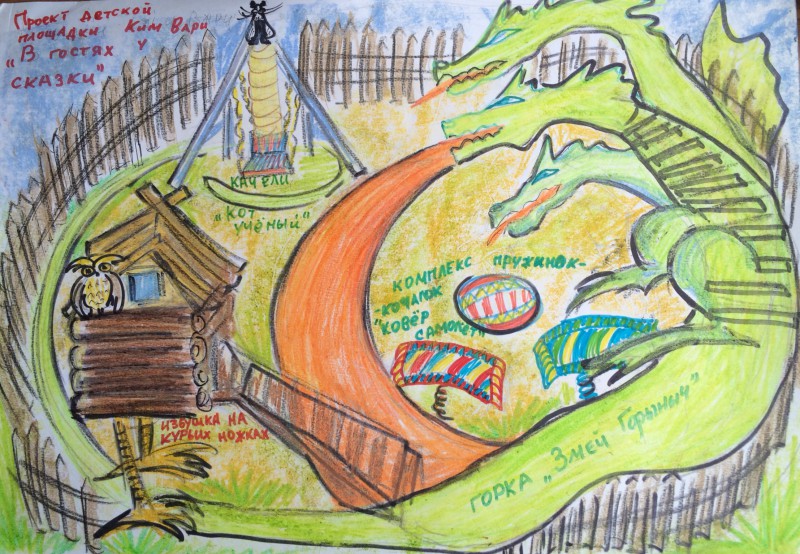 Проект детской
площадки Ким Вари
„В гостях у
сказки"
качели
„Кот
учёный"
комплекс пружинок-
-качалок
"ковёр
самолёт"
избушка на
курьих ножках
горка „Змей Горыныч"